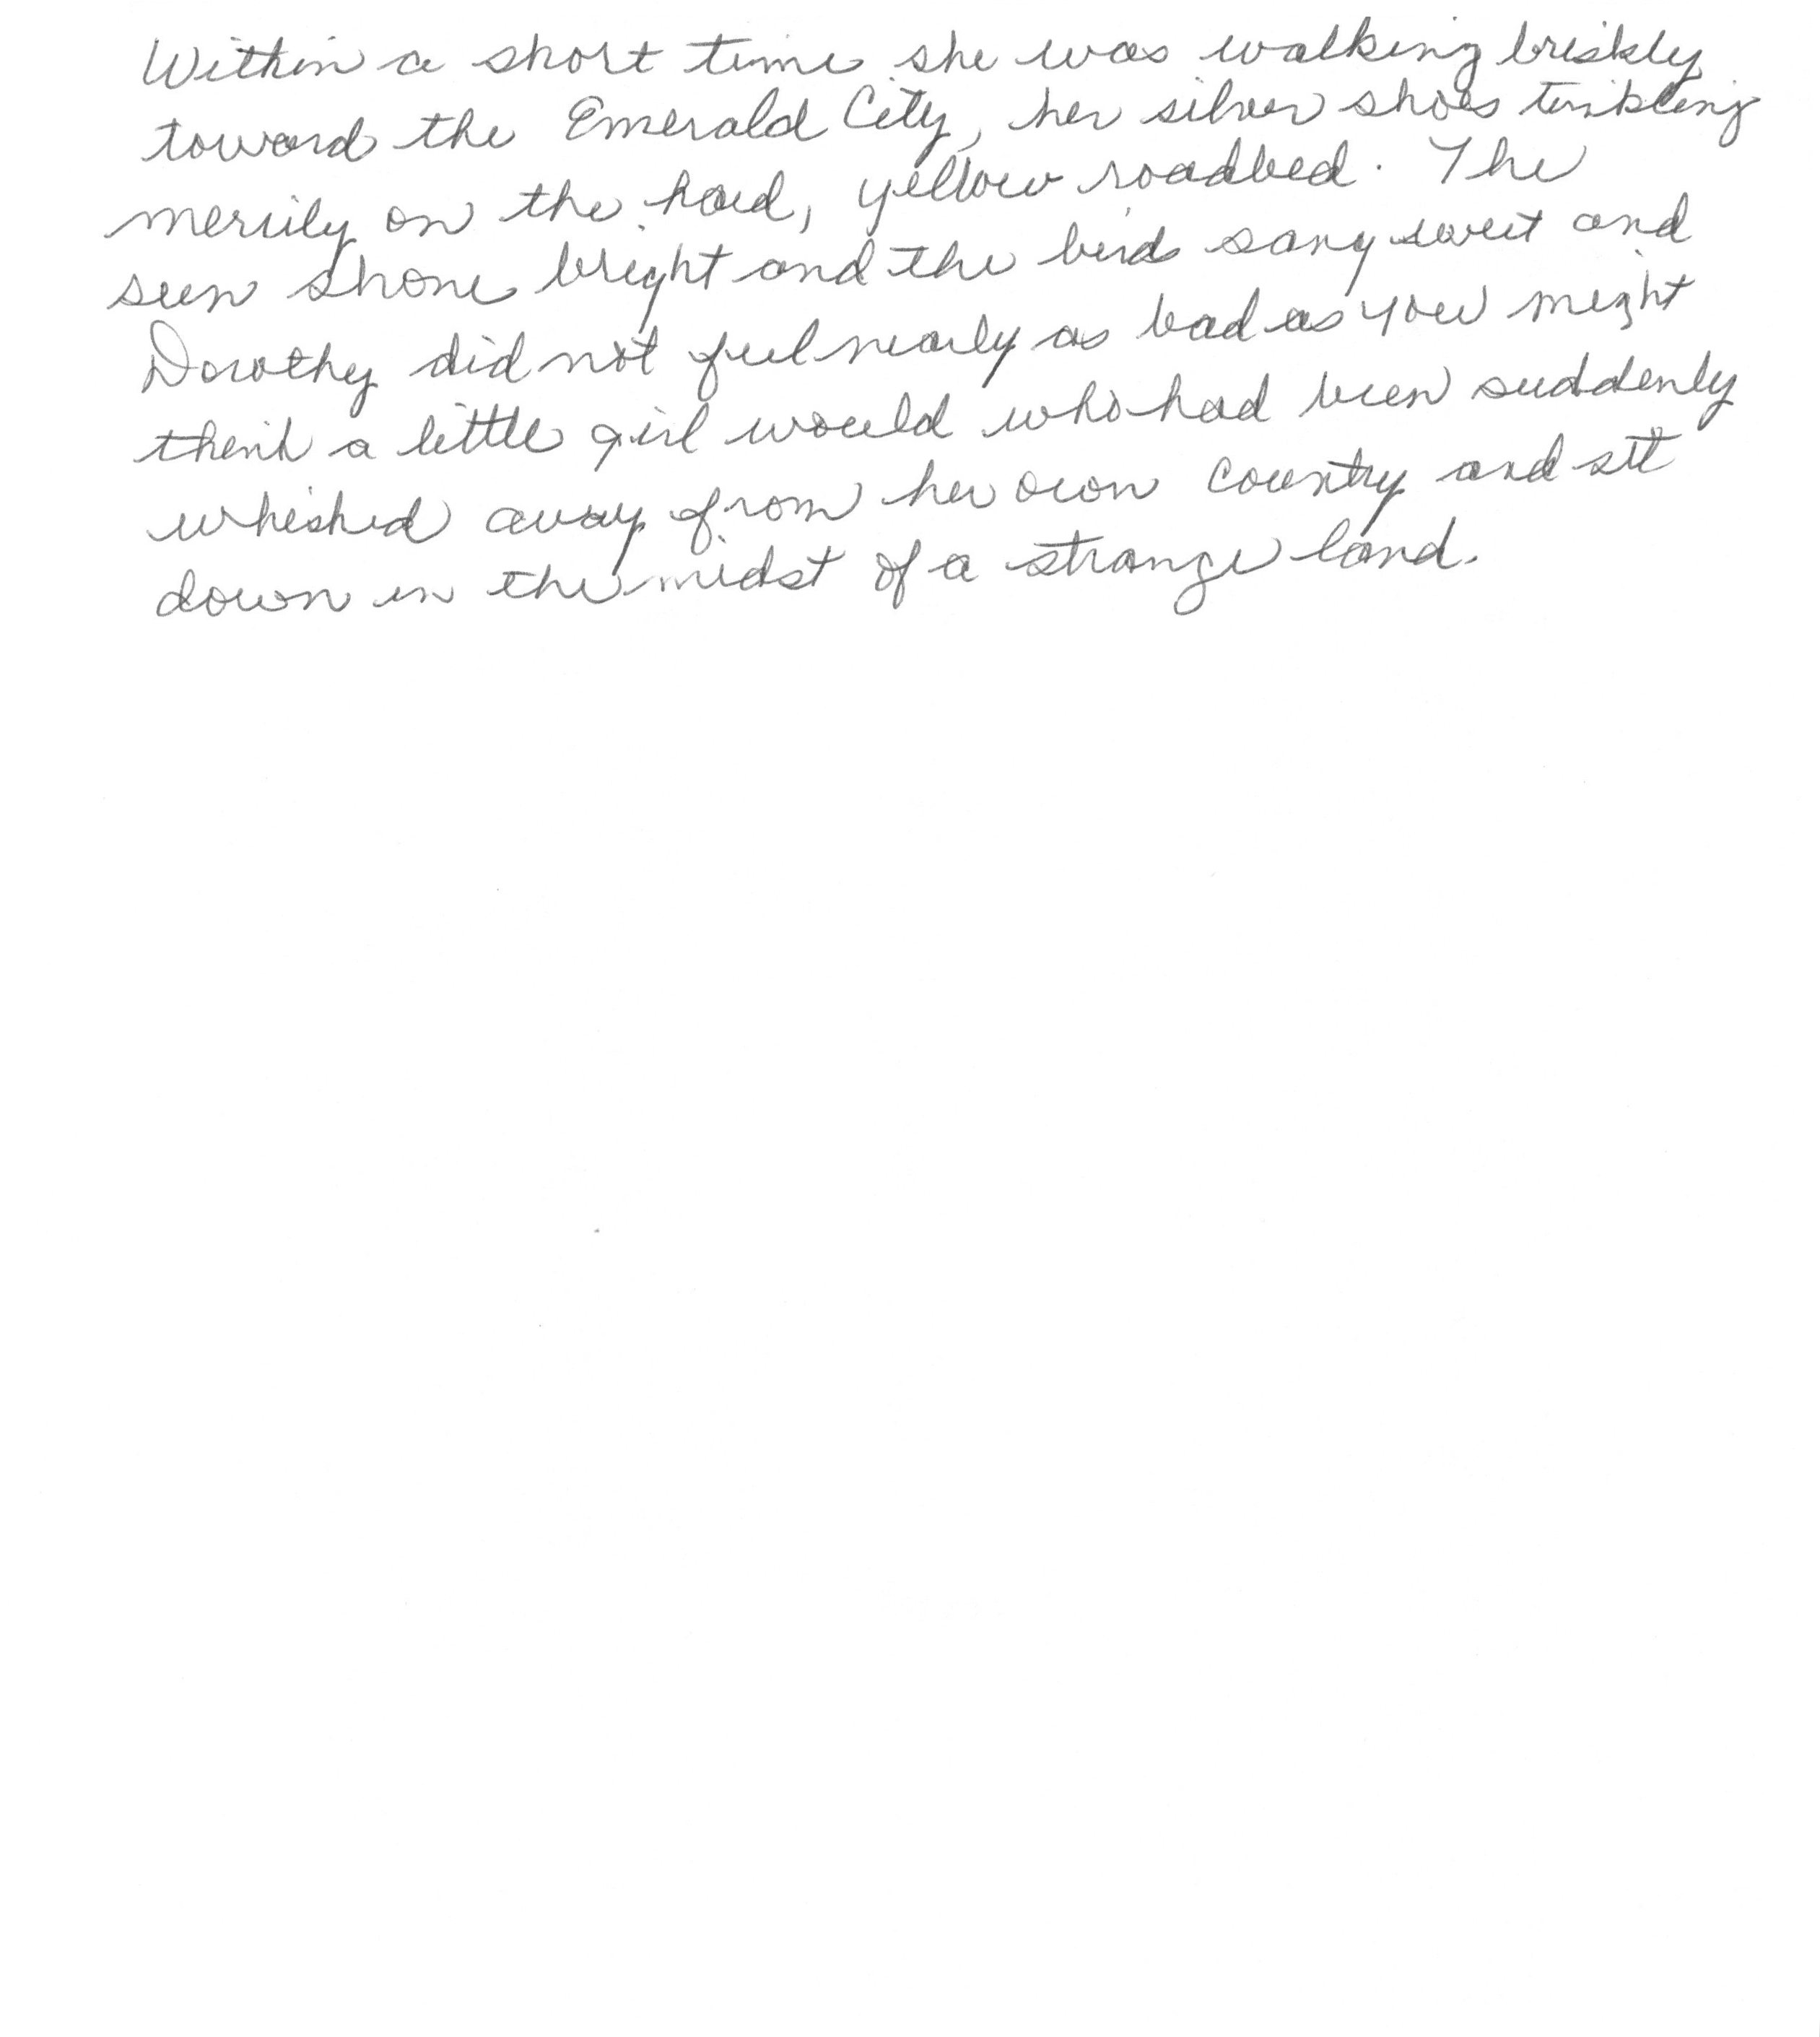 Within a short time she was walking briskly
toward the Emerald City, her silver shoes tinkling
merrily on the hard, yellow roadbed. The
sun shone bright and the birds sang sweet and
Dorothy did not feel nearly as bad as you might
think a little girl would who had been suddenly
whisked away from her own country and set
down in the midst of a strange land.